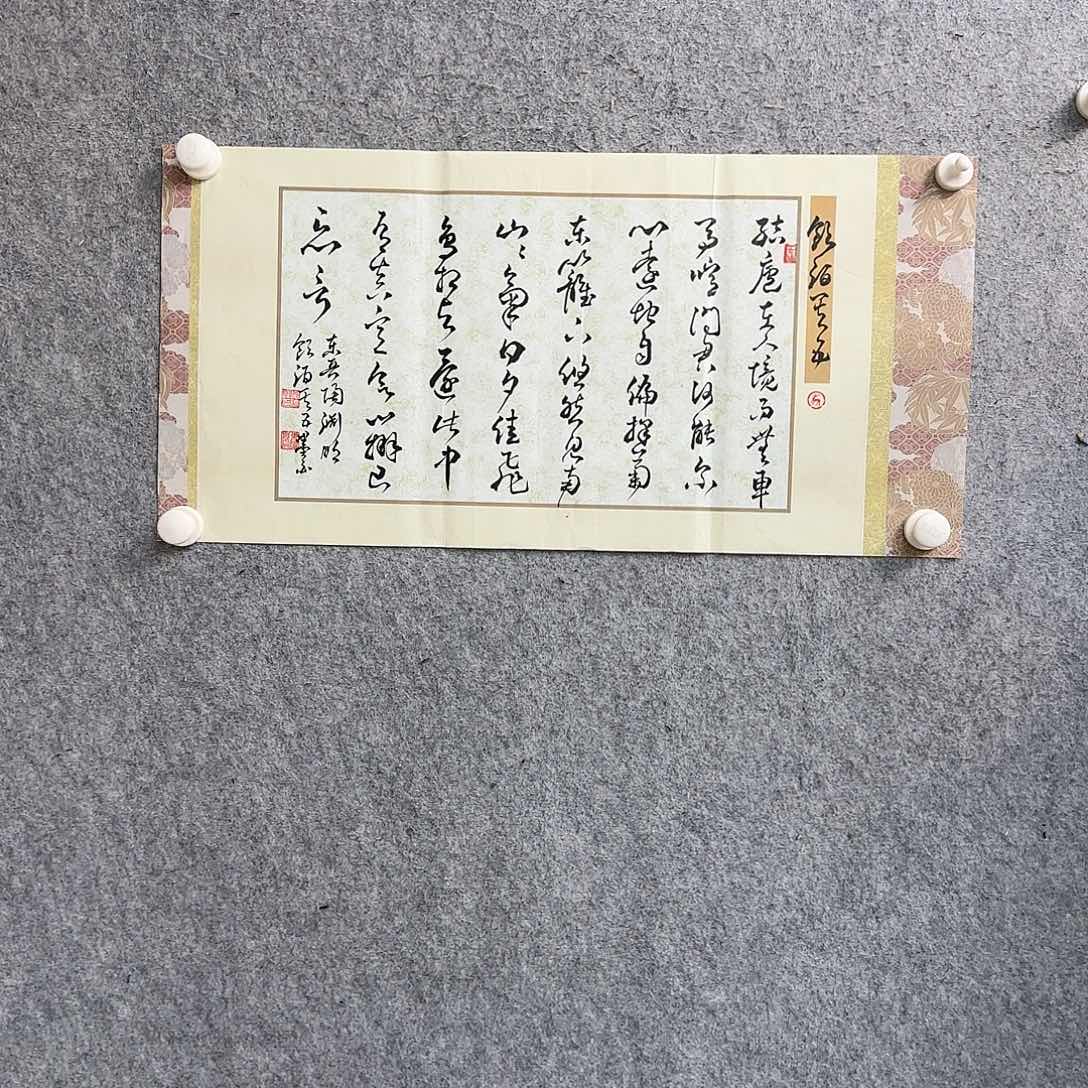 飲酒其五
結廬在人境而無車
馬喧問君何能尔
心遠地自偏採菊
东籬下悠然見南
山〻氣日夕佳飛
鳥相与還此中
有真意欲辨已
忘言
东晋陶渊明
飲酒其五